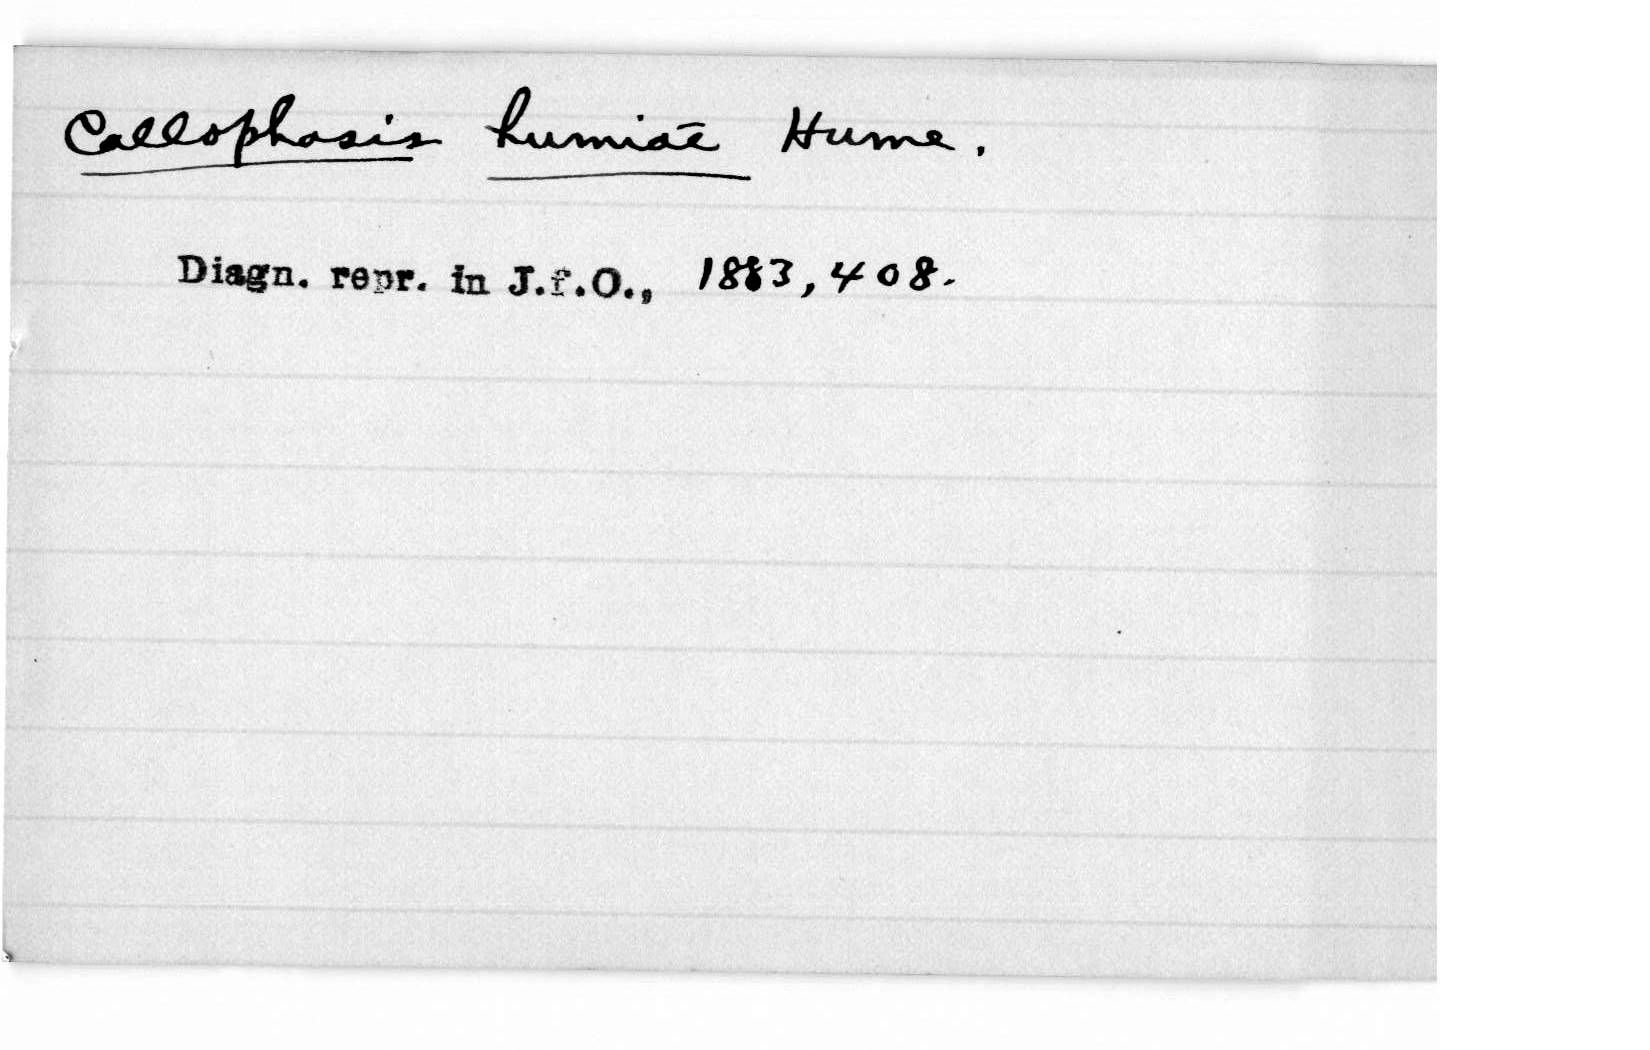 Callophasis humiae Hume.
Diagn. repr. in J.f.O., 1883, 408.